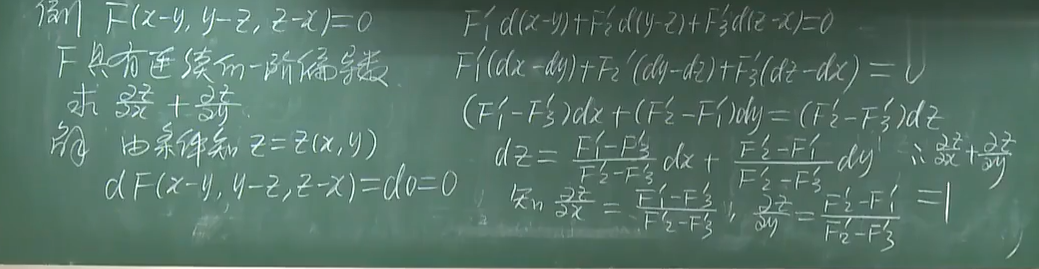 例 F(x-y, y-z, z-x)=0
F具有连续的一阶偏导数
求 ∂z/∂x + ∂z/∂y
解 由条件知 z=z(x,y)
dF(x-y, y-z, z-x)=d0=0
F₁'d(x-y)+F₂'d(y-z)+F₃'d(z-x)=0
F₁'(dx-dy)+F₂'(dy-dz)+F₃'(dz-dx)=0
(F₁'-F₃')dx+(F₂'-F₁')dy=(F₂'-F₃')dz
dz = (F₁'-F₃')/(F₂'-F₃') dx + (F₂'-F₁')/(F₂'-F₃') dy ∴ ∂z/∂x+∂z/∂y
知 ∂z/∂x = (F₁'-F₃')/(F₂'-F₃'), ∂z/∂y = (F₂'-F₁')/(F₂'-F₃') =1